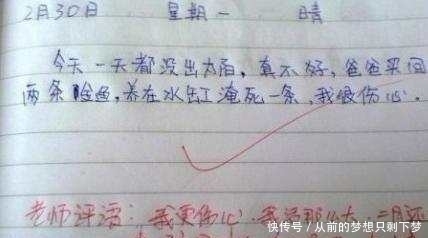 2月30日 星期一 晴
今天一天都没出太阳，真不好，爸爸买回
两条金鱼，养在水缸淹死一条，我很伤心．
老师评语：我更伤心．我
快传号/从前的梦想只剩下梦